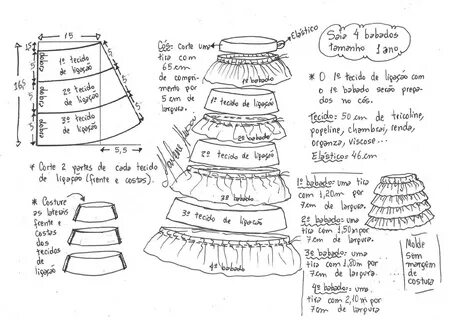 15
15
5
5
5
5
5
5
5,5
16,5
dobra
dobra
dobra
1º tecido
de ligação
2º tecido
de ligação
3º tecido
de ligação
* Corte 2 partes de cada tecido
de ligação (frente e costas).
* Costure
as laterais
frente e
costas
dos
tecidos
de
ligação
Cós: Corte uma
tira com
65 cm
de compri-
mento por
5 cm de
largura.
Elástico
1º babado
1º tecido de ligação
2º babado
2º tecido de ligação
3º babado
3º tecido de ligação
4º babado
Saia 4 babados
tamanho 1 ano
* O 1º tecido de ligação com
o 1º babado serão prega-
dos no cós.
Tecido: 50 cm de tricoline,
popeline, chambrai, renda,
organza, viscose...
Elástico: 46 cm
1º babado: uma tira
com 1,20m por
7 cm de largura.
2º babado: uma
tira com 1,50m por
7 cm de largura.
3º babado: uma
tira com 1,80m por
7 cm de largura.
4º babado: uma
tira com 2,10m por
7 cm de largura
Molde
sem
margem
de
costura